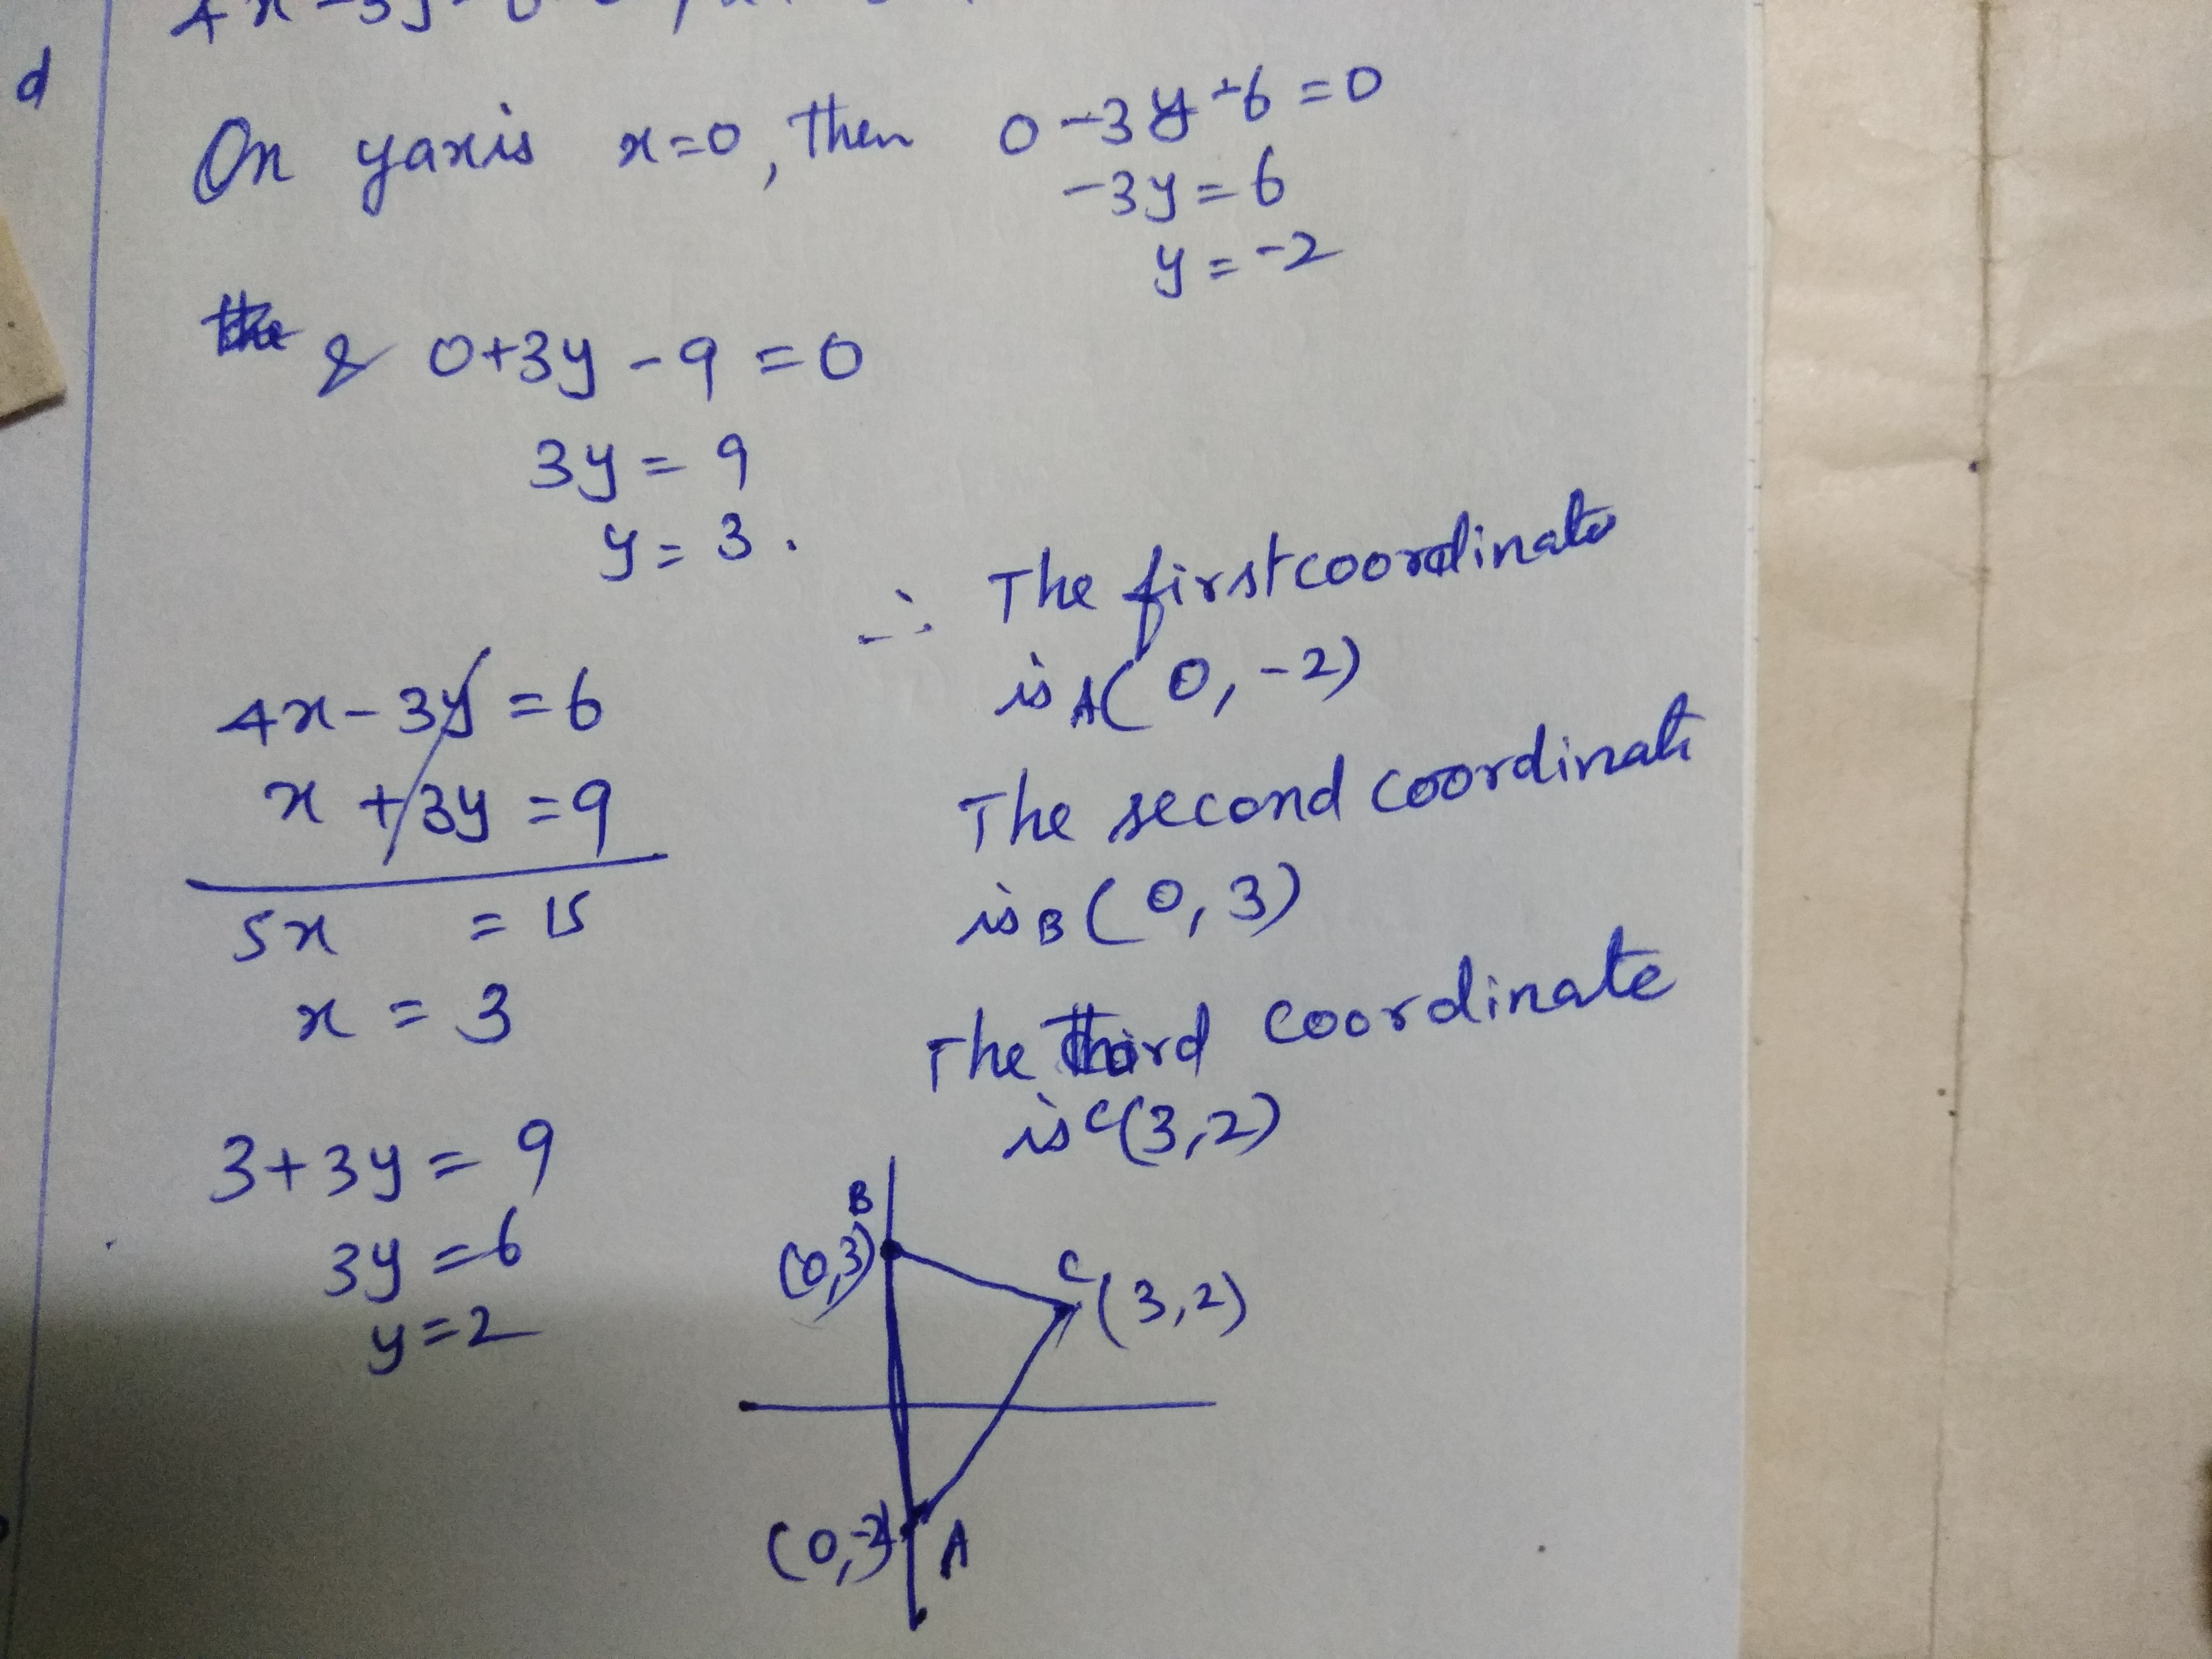 d
On yaxis x=0, then 0-3y-6=0
-3y=6
y=-2
& 0+3y-9=0
3y=9
y=3.
∴ The first coordinate
is A(0,-2)
4x-3y=6
x+3y=9
5x =15
x=3
The second coordinate
is B(0,3)
The third coordinate
is C(3,2)
3+3y=9
3y=6
y=2
B
(0,3)
C(3,2)
(0,-2) A